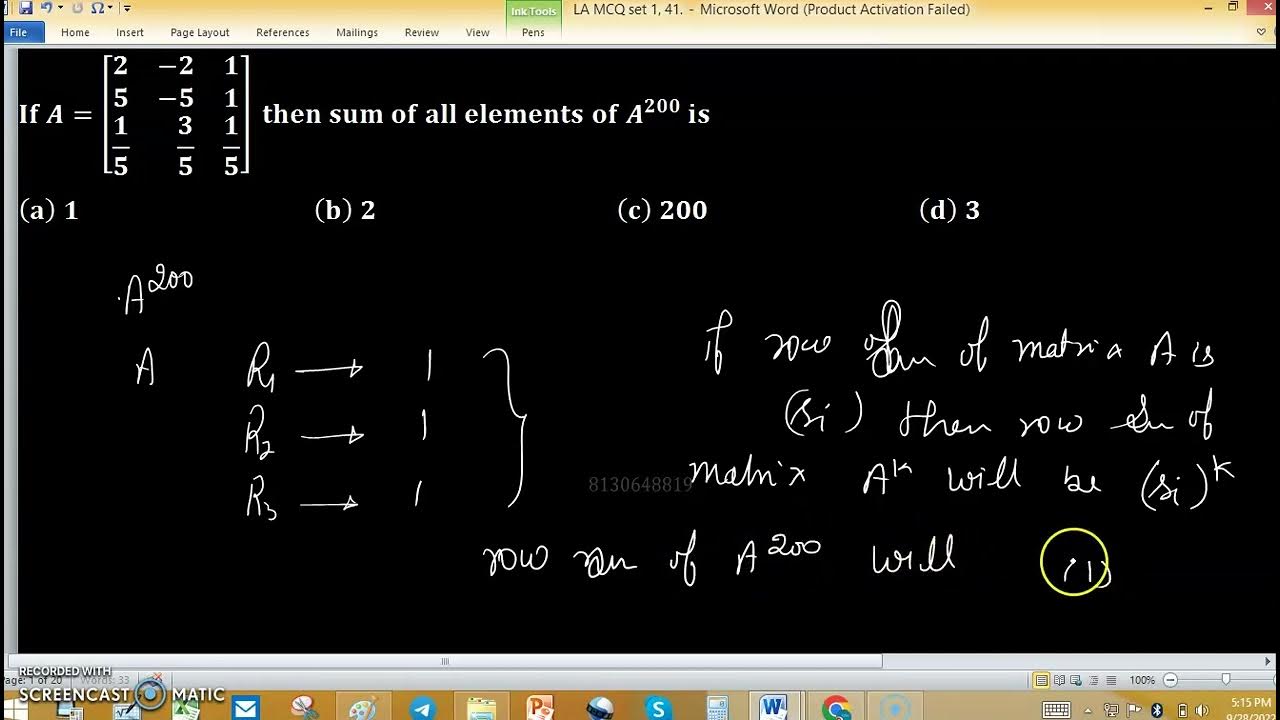 Ink Tools
LA MCQ set 1, 41. - Microsoft Word (Product Activation Failed)
File Home Insert Page Layout References Mailings Review View Pens
If A = [2 −2 1
5 −5 1
1/5 3/5 1/5] then sum of all elements of A^200 is
(a) 1 (b) 2 (c) 200 (d) 3
A^200
A R1 → 1
R2 → 1
R3 → 1
if row sum of matrix A is
(si) then row sum of
matrix A^k will be (si)^k
row sum of A^200 will (1)
8130648819
RECORDED WITH
SCREENCAST MATIC
Page: 1 of 20 Words: 33
100%
5:15 PM